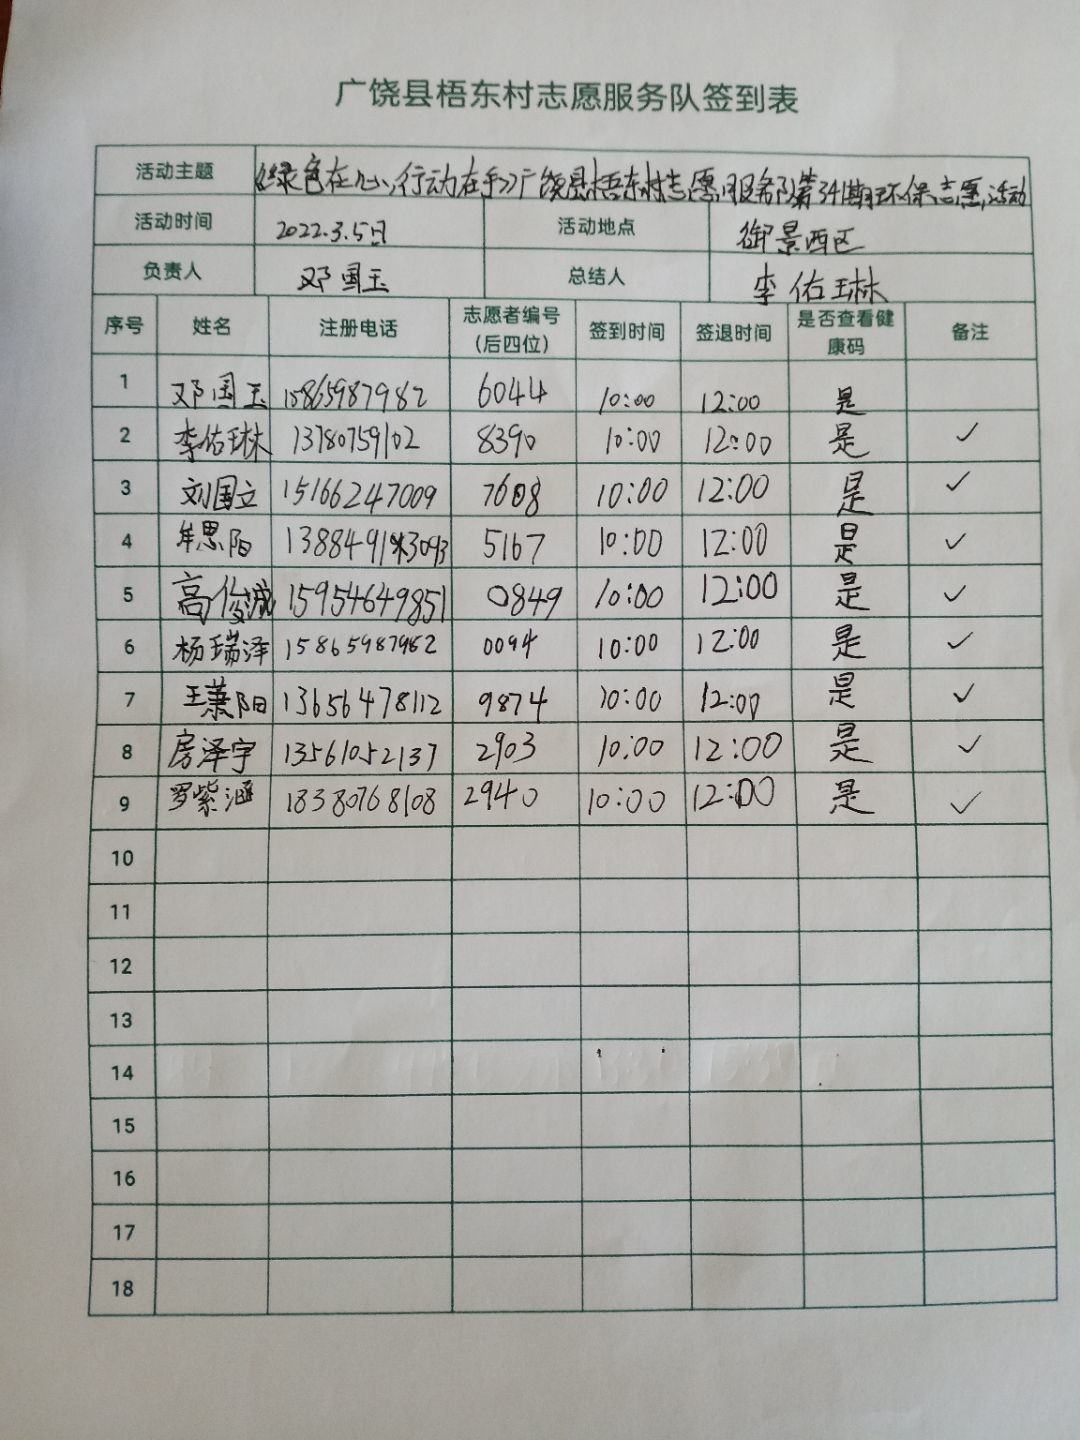 广饶县梧东村志愿服务队签到表
活动主题 《绿色在心、行动在手》广饶县梧东村志愿服务队第341期环保志愿活动
活动时间 2022.3.5日 活动地点 御景西区
负责人 邓国玉 总结人 李佑琳
序号 姓名 注册电话 志愿者编号（后四位） 签到时间 签退时间 是否查看健康码 备注
1 邓国玉 15865987982 6044 10:00 12:00 是
2 李佑琳 13780759102 8390 10:00 12:00 是 ✓
3 刘国立 15166247009 7608 10:00 12:00 是 ✓
4 牟思阳 5167 10:00 12:00 是 ✓
5 高俊诚 15954649851 0849 10:00 12:00 是 ✓
6 杨瑞泽 15865987982 0094 10:00 12:00 是 ✓
7 王萧阳 13656478112 9874 10:00 12:00 是 ✓
8 房泽宇 13561052137 2903 10:00 12:00 是 ✓
9 罗紫涵 18380768108 2940 10:00 12:00 是 ✓
10
11
12
13
14
15
16
17
18